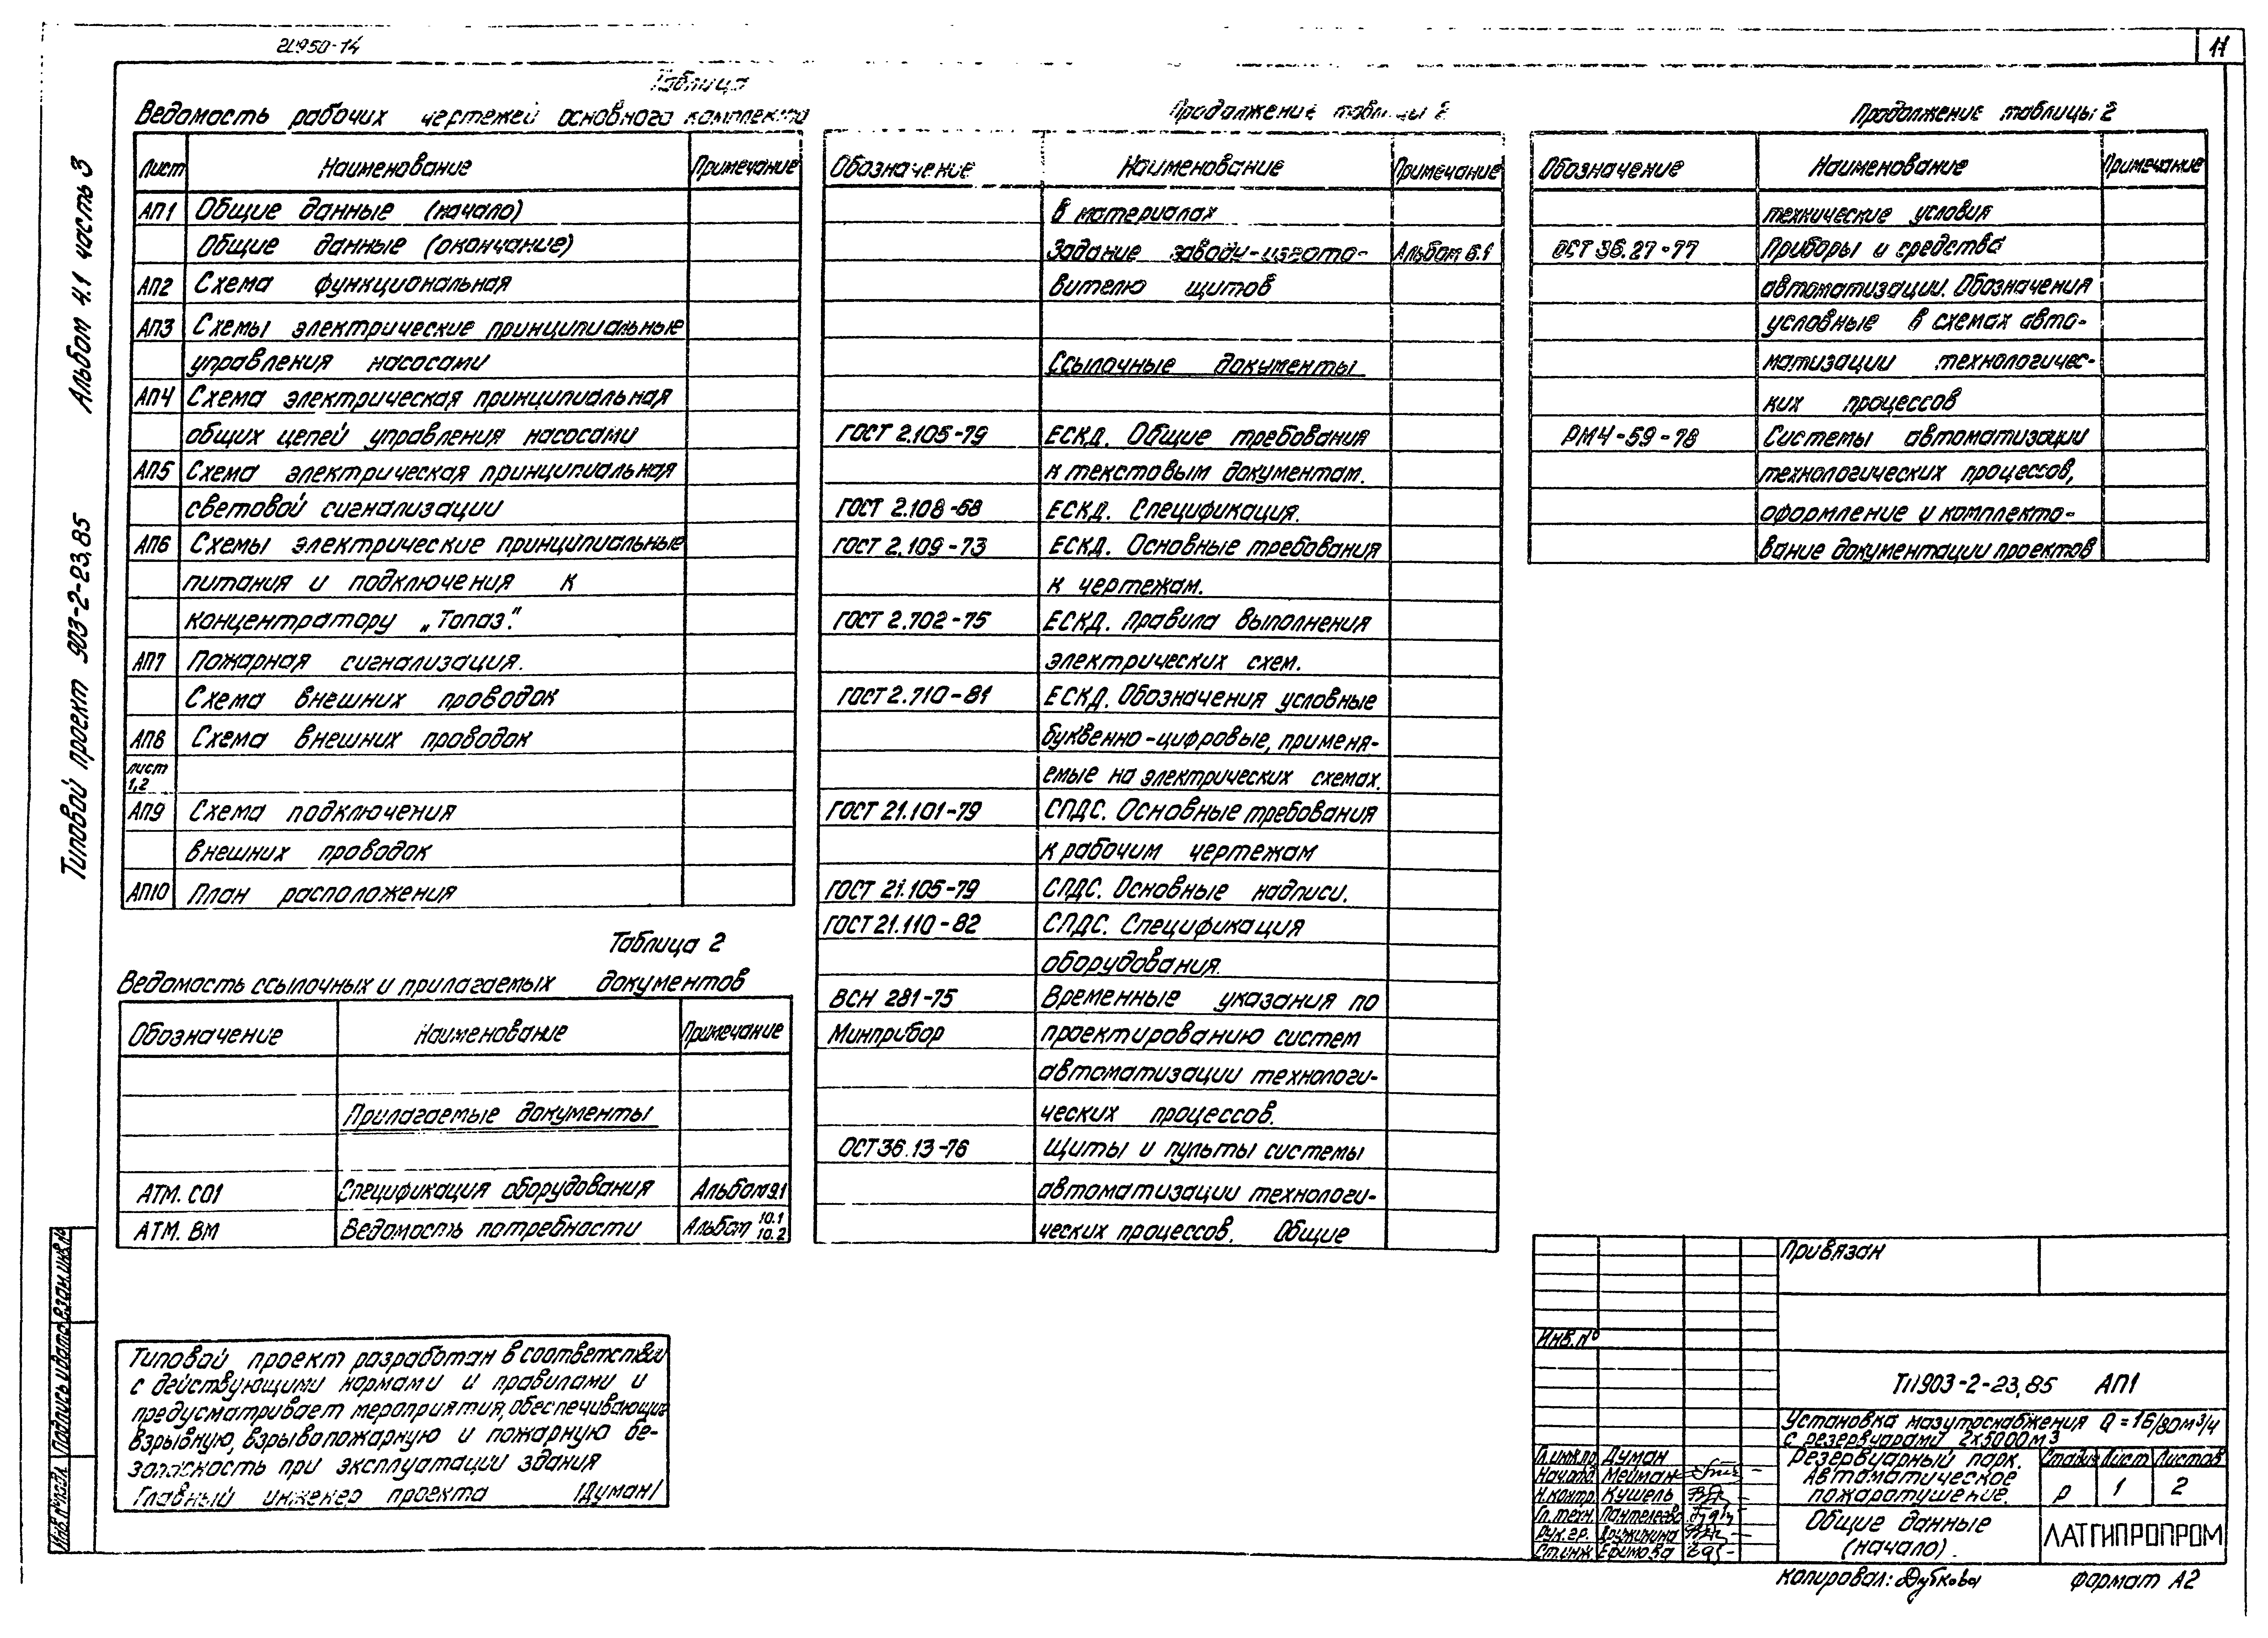 11
Альбом 4.1 часть 3
Типовой проект 903-2-23.85
Таблица
Ведомость рабочих чертежей основного комплекта
Лист Наименование Примечание
АП1 Общие данные (начало)
Общие данные (окончание)
АП2 Схема функциональная
АП3 Схемы электрические принципиальные
управления насосами
АП4 Схема электрическая принципиальная
общих цепей управления насосами
АП5 Схема электрическая принципиальная
световой сигнализации
АП6 Схемы электрические принципиальные
питания и подключения к
концентратору „Топаз".
АП7 Пожарная сигнализация.
Схема внешних проводок
АП8 Схема внешних проводок
лист
1,2
АП9 Схема подключения
внешних проводок
АП10 План расположения
Таблица 2
Ведомость ссылочных и прилагаемых документов
Обозначение Наименование Примечание
Прилагаемые документы
АТМ. СО1 Спецификация оборудования Альбом 9.1
АТМ. ВМ Ведомость потребности Альбом 10.1
10.2
Продолжение таблицы 2
Обозначение Наименование Примечание
в материалах
Задание заводу-изгото- Альбом 6.1
вителю щитов
Ссылочные документы
ГОСТ 2.105-79 ЕСКД. Общие требования
к текстовым документам.
ГОСТ 2.108-68 ЕСКД. Спецификация.
ГОСТ 2.109-73 ЕСКД. Основные требования
к чертежам.
ГОСТ 2.702-75 ЕСКД. Правила выполнения
электрических схем.
ГОСТ 2.710-81 ЕСКД. Обозначения условные
буквенно-цифровые, применя-
емые на электрических схемах.
ГОСТ 21.101-79 СПДС. Основные требования
к рабочим чертежам
ГОСТ 21.105-79 СПДС. Основные надписи.
ГОСТ 21.110-82 СПДС. Спецификация
оборудования.
ВСН 281-75 Временные указания по
Минприбор проектированию систем
автоматизации технологи-
ческих процессов.
ОСТ 36.13-76 Щиты и пульты системы
автоматизации технологи-
ческих процессов. Общие
Продолжение таблицы 2
Обозначение Наименование Примечание
технические условия
ОСТ 36.27-77 Приборы и средства
автоматизации. Обозначения
условные в схемах авто-
матизации технологичес-
ких процессов
РМ4-59-78 Системы автоматизации
технологических процессов,
оформление и комплекто-
вание документации проектов
Типовой проект разработан в соответствии
с действующими нормами и правилами и
предусматривает мероприятия, обеспечивающие
взрывную, взрывопожарную и пожарную бе-
зопасность при эксплуатации здания
Главный инженер проекта /Думан/
Инв.№ подл. Подпись и дата Взам.инв.№
Привязан
Инв.№
ТП 903-2-23.85 АП1
Установка мазутоснабжения Q=16/80м³/ч
с резервуарами 2х5000м³
Гл.инж.пр. Думан
Нач.отд. Мейман
Н.контр. Кушель
Гл.техн. Пантелеева
Рук.гр. Дружинина
Ст.инж. Ефимова
Резервуарный парк.
Автоматическое
пожаротушение.
Стадия Лист Листов
Р 1 2
Общие данные
(начало).
ЛАТГИПРОПРОМ
Копировал: Дубкова Формат А2